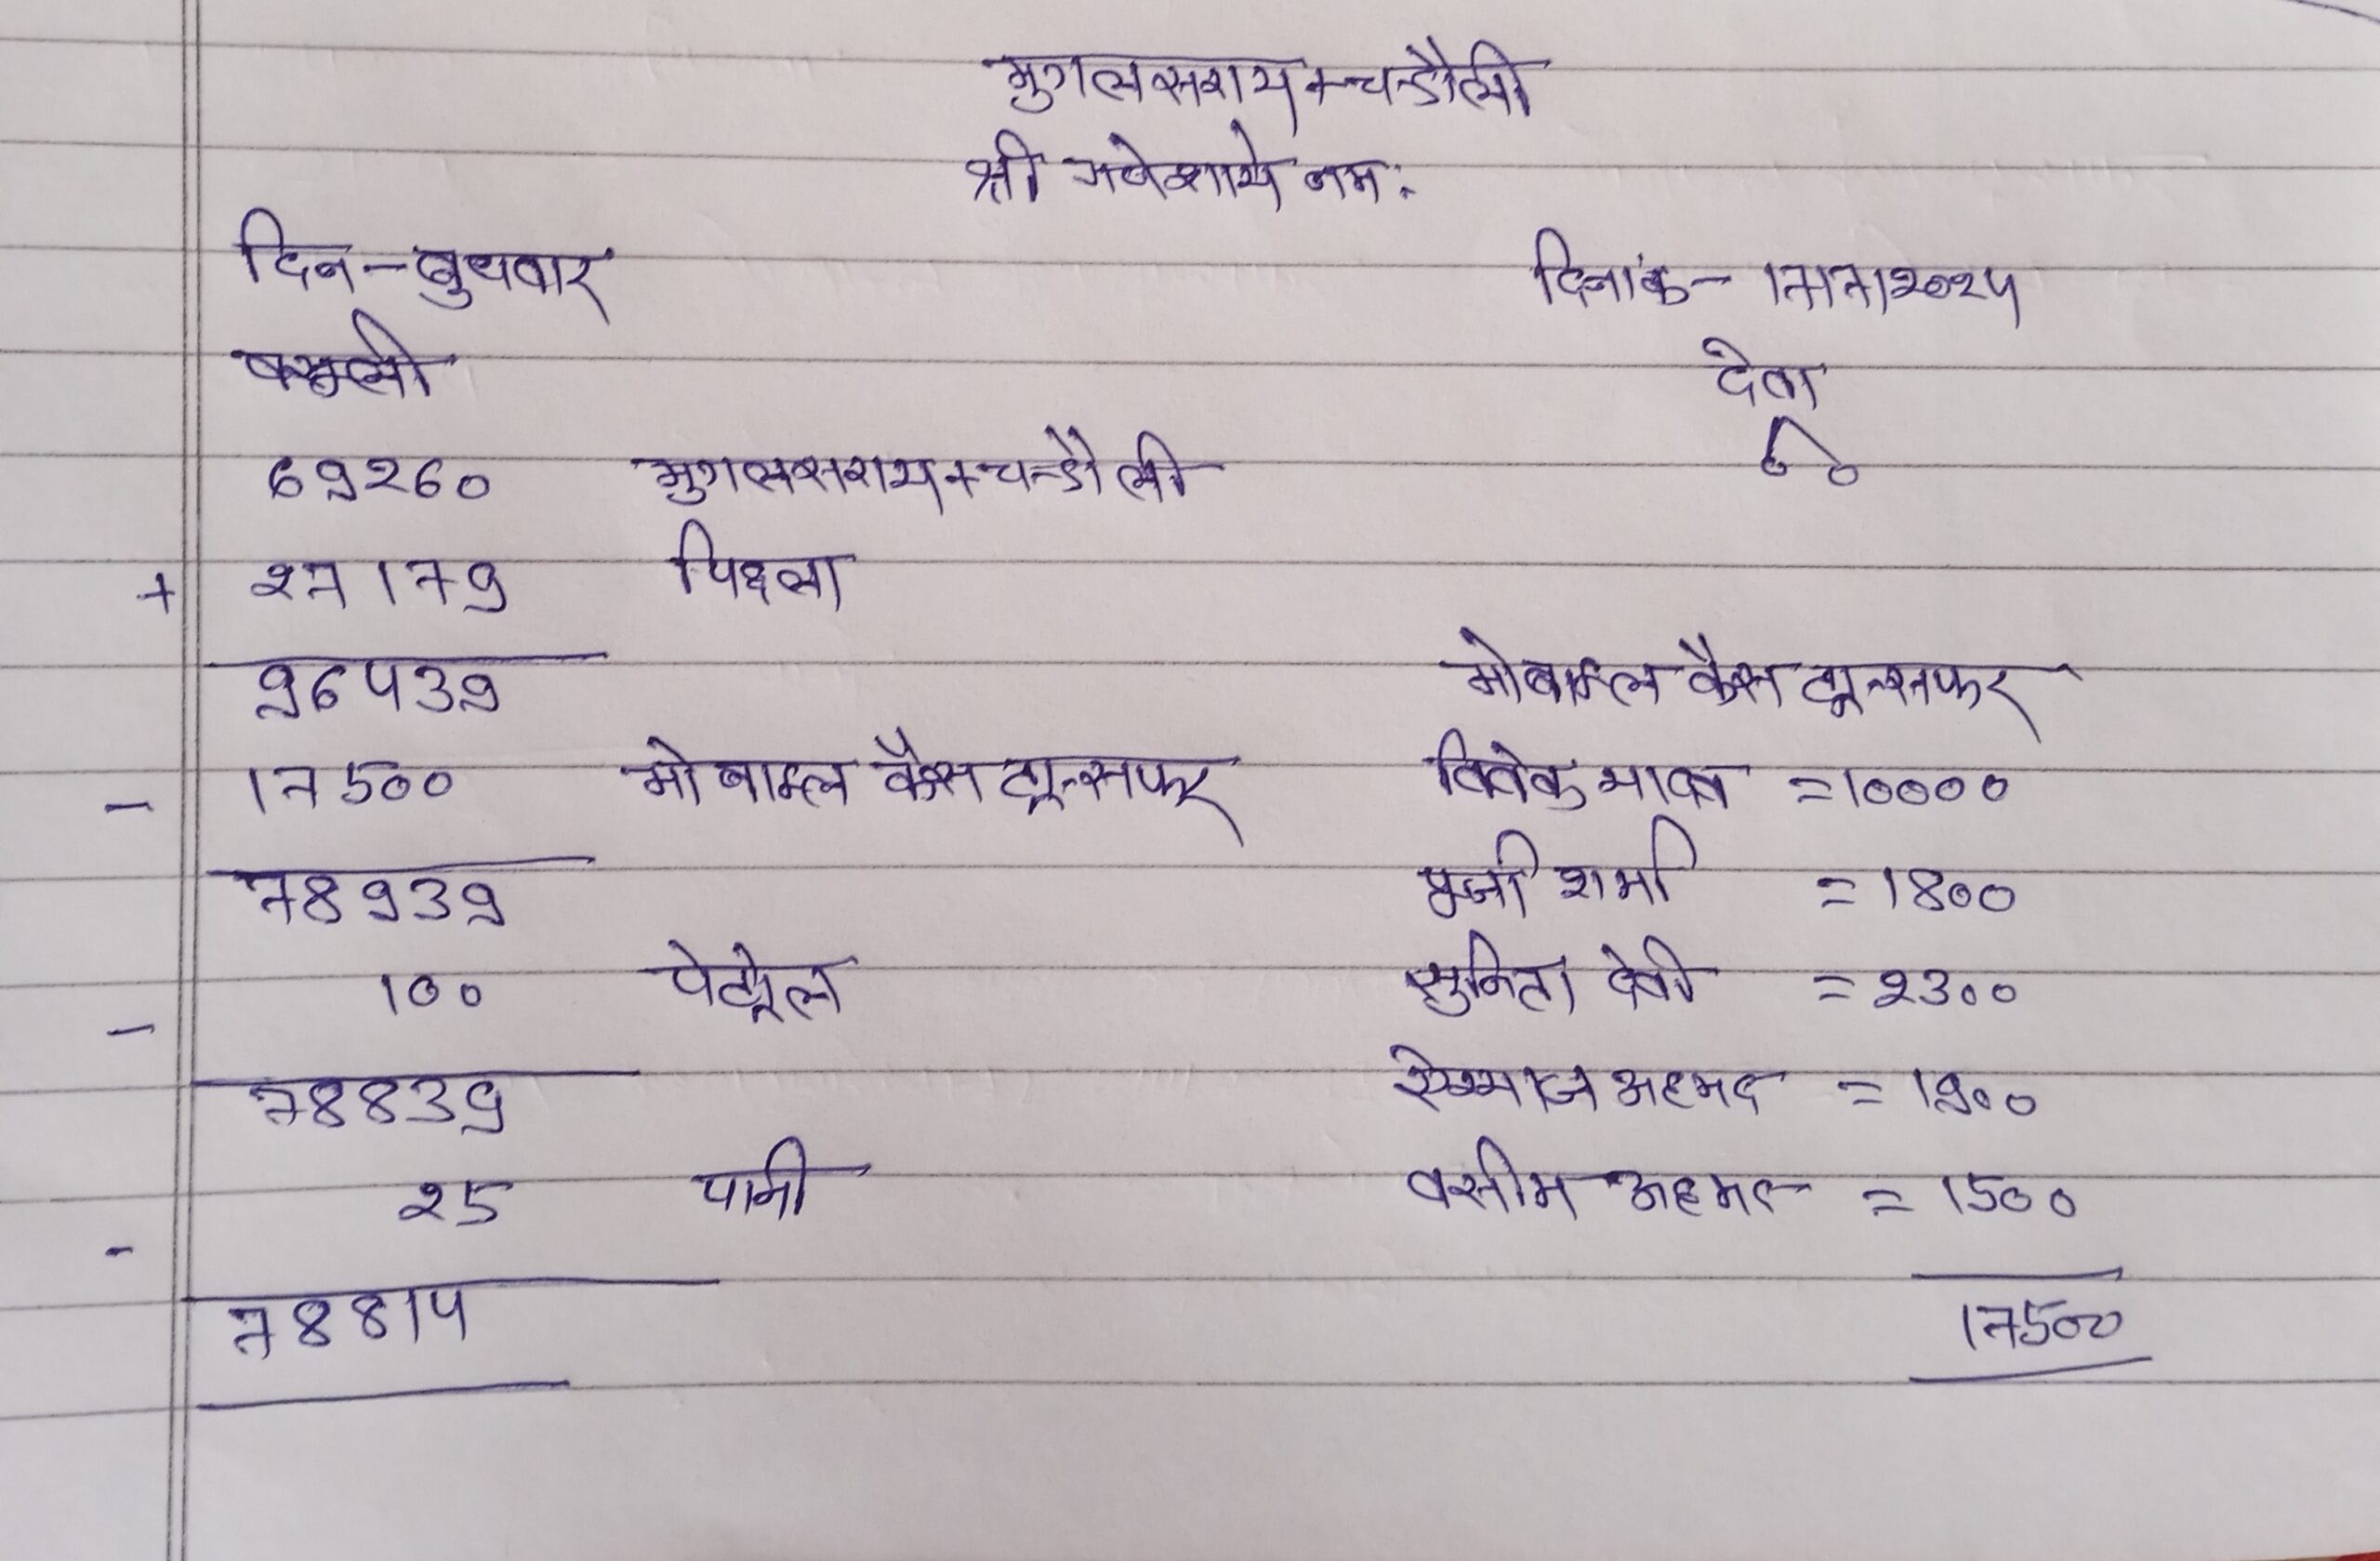 मुगलसराय + चन्डौली
श्री गणेशाये नमः
दिन - बुधवार दिनांक - 17/7/2024
वसूली देवा
69260 मुगलसराय + चन्डौली
+ 27179 पिछला
96439 मोबाइल कैस ट्रान्सफर
- 17500 मोबाइल कैस ट्रान्सफर विवेक = 10000
78939 शर्मा = 1800
- 100 पेट्रोल सुनिता देवी = 2300
78839 अहमद = 1900
- 25 पानी वसीम अहमद = 1500
78814 17500